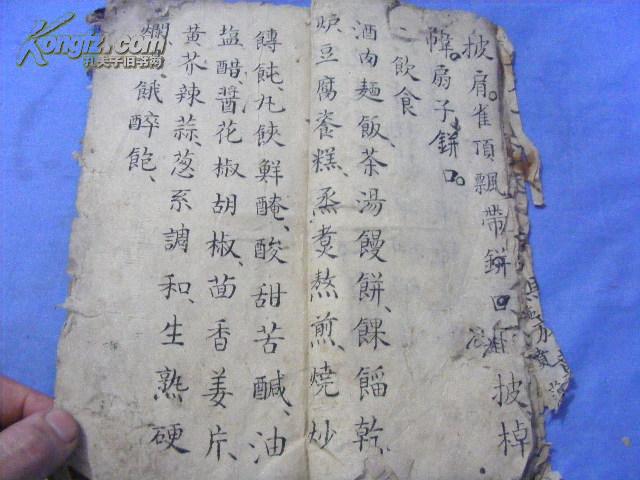 披肩。雀頂飄帶鉼口
披棹
幃。扇子鉼口。
二飲食
酒肉麵飯、茶湯饅餅、餜餾乾、
炉豆腐餈糕、烝煑熬煎、燒炒
餺飩、丸餃鮮醃、酸甜苦醎、油
塩醋、醬花椒胡椒、茴香姜片、
黄芥辣蒜、葱系調和、生熟硬
爛、餓醉飽、
Kongfz.com
孔夫子旧书网